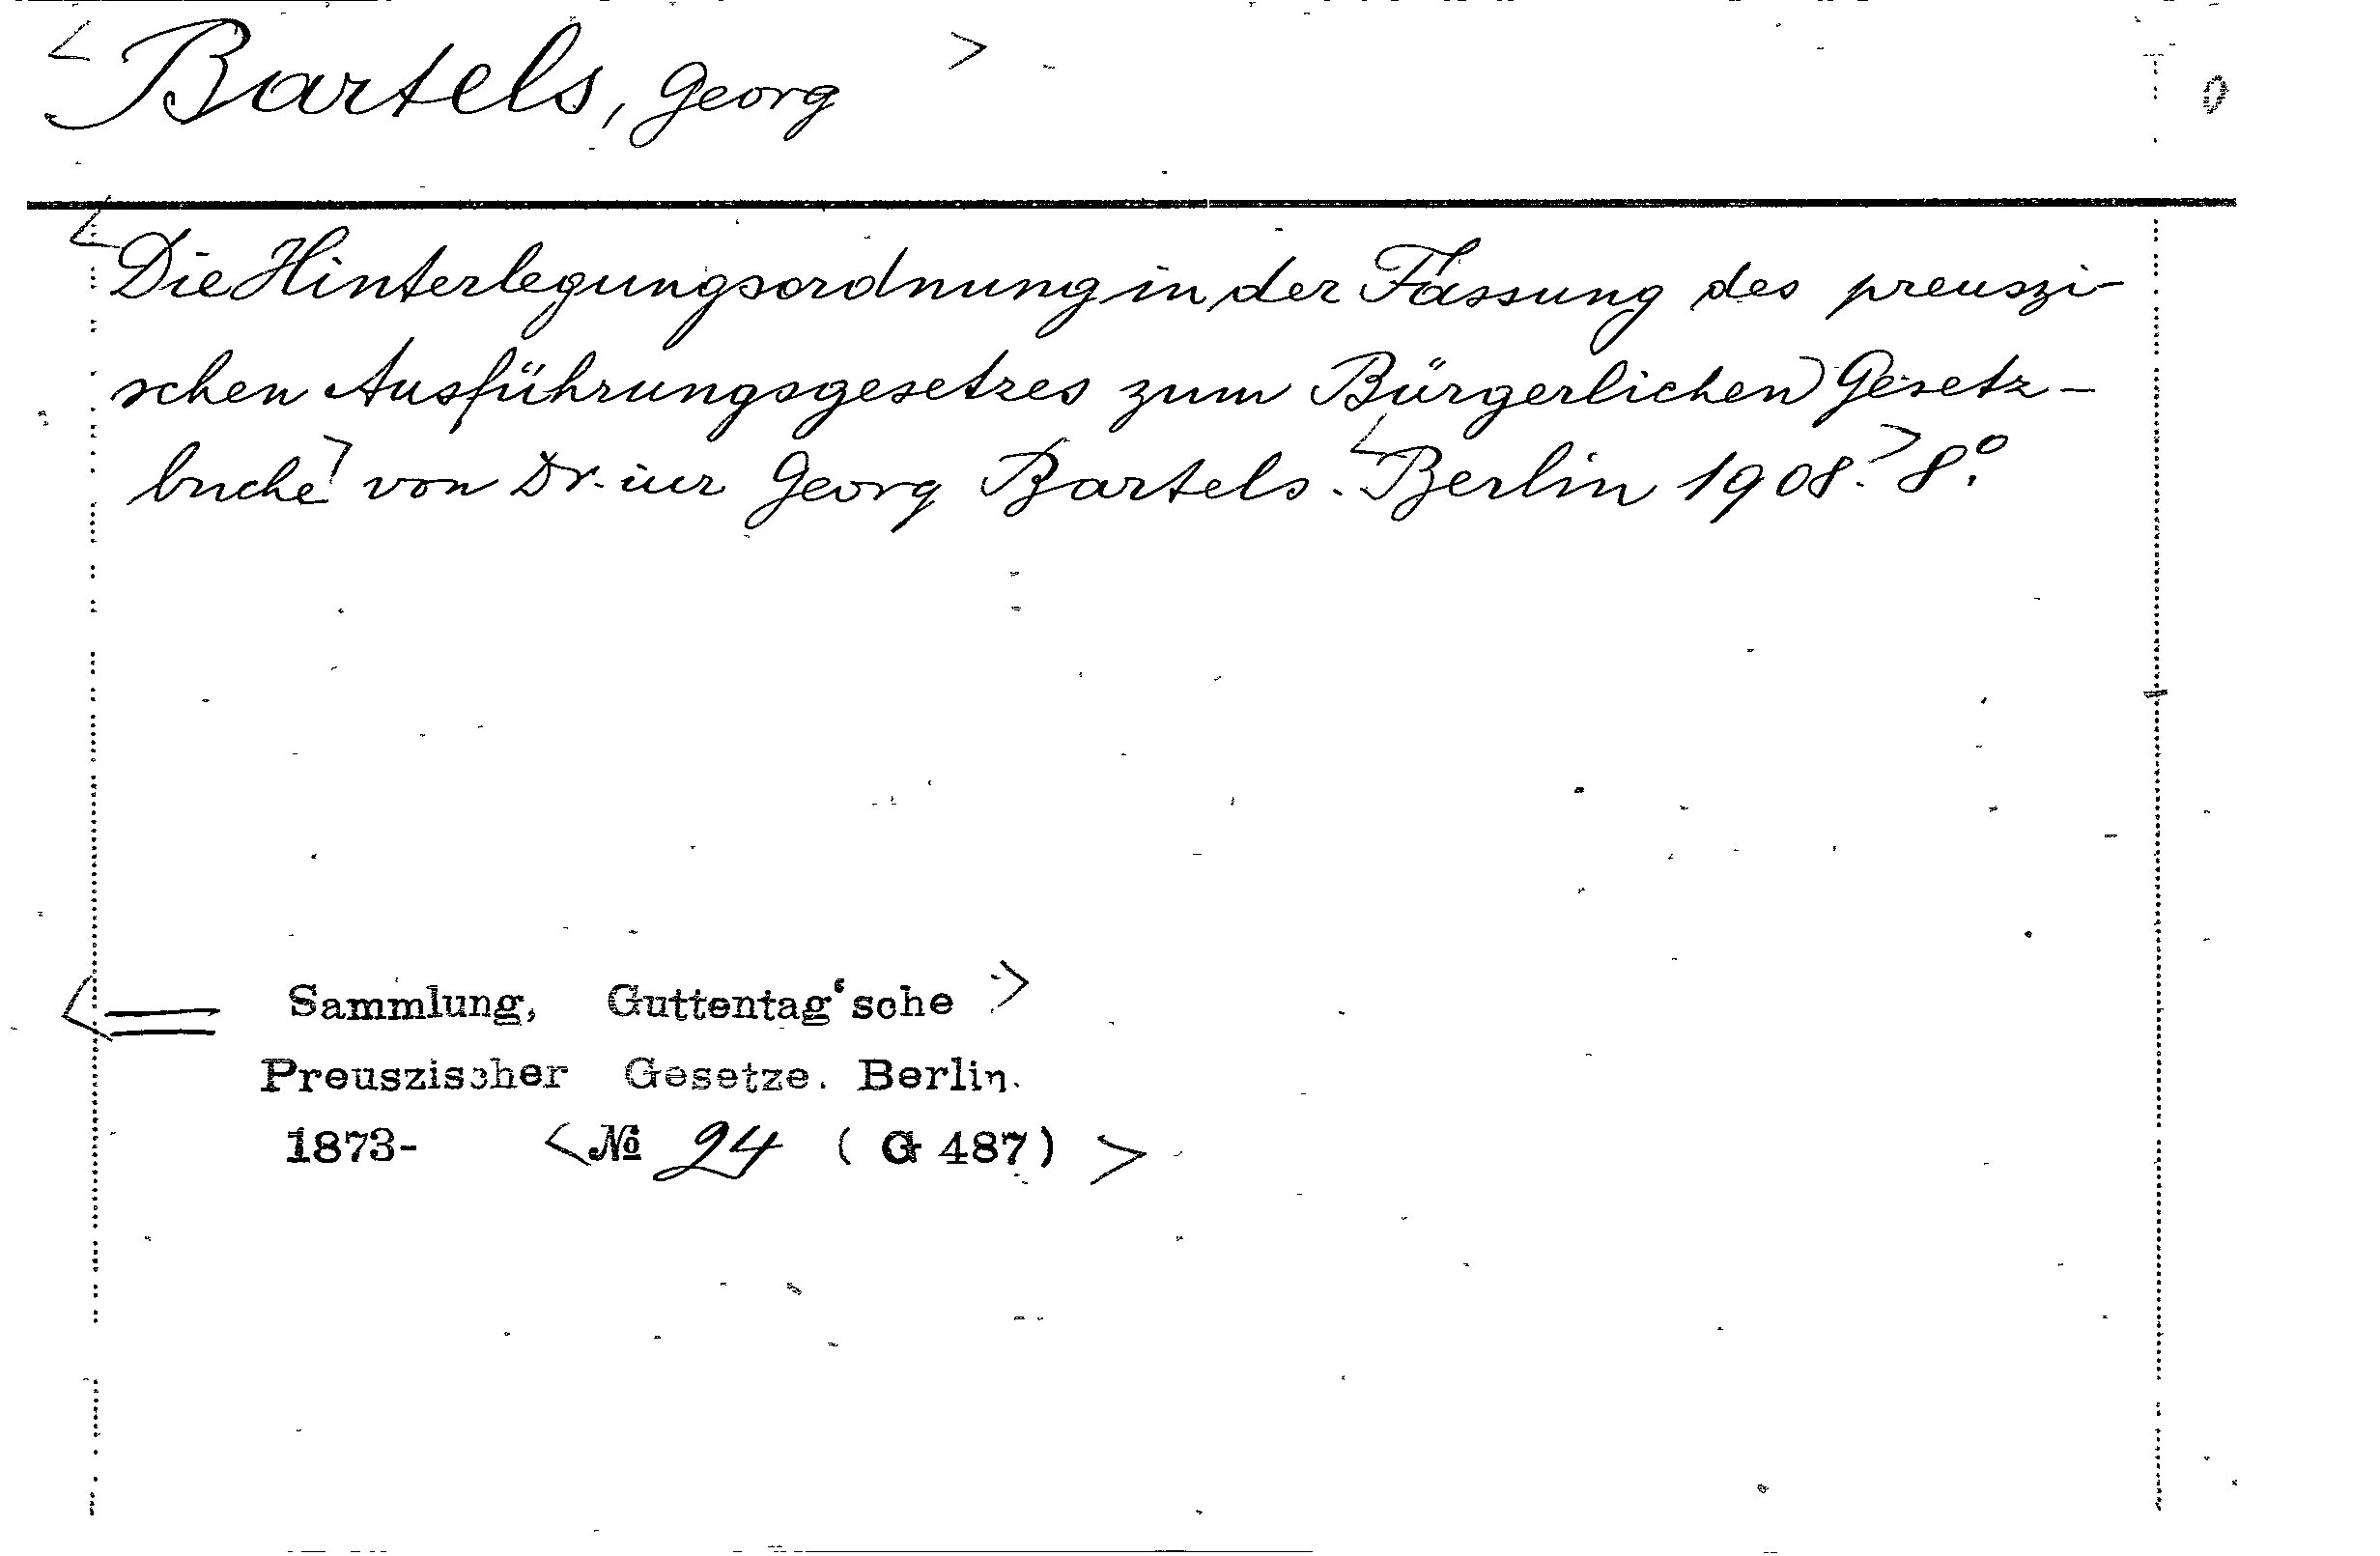 < Bartels, Georg >
<Die Hinterlegungsordnung in der Fassung des preuszi-
schen Ausführungsgesetzes zum Bürgerlichen Gesetz-
buche> von Dr. iur Georg Bartels. <Berlin 1908.> 8º.
<= Sammlung, Guttentag'sche >
Preuszischer Gesetze. Berlin.
1873- <№ 24 ( G 487) >